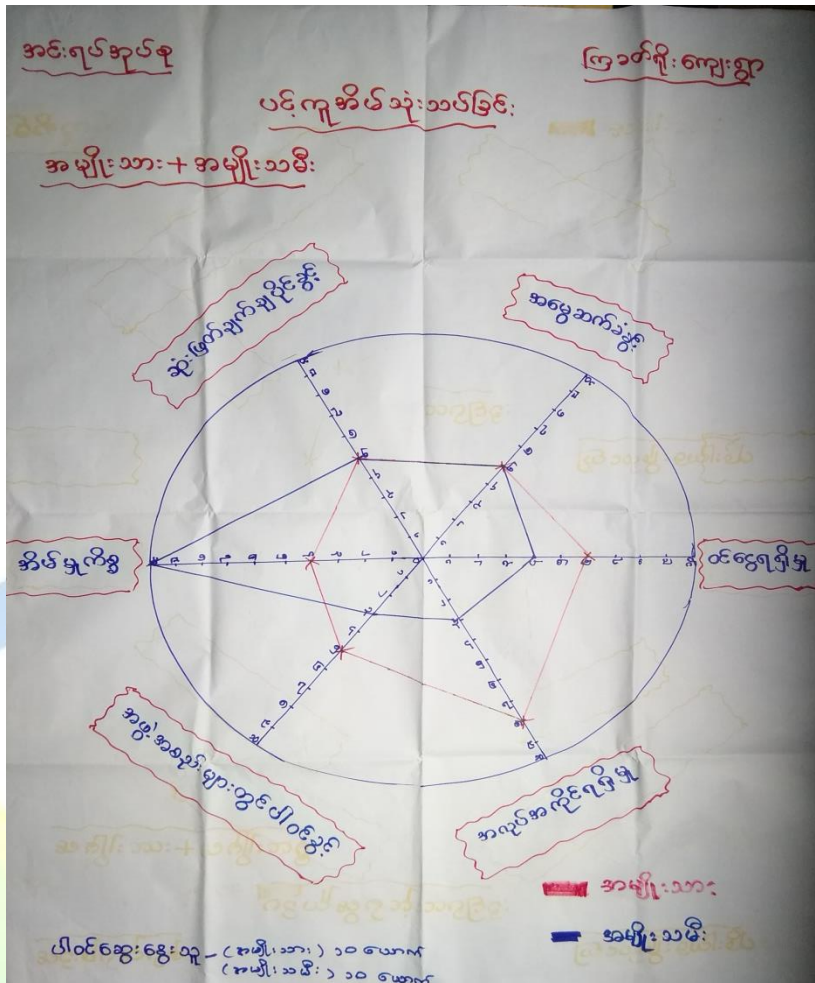 အင်းရပ်အုပ်စု
ကြခတ်ရိုးကျေးရွာ
ပင့်ကူအိမ်သုံးသပ်ခြင်း
အမျိုးသား + အမျိုးသမီး
ဆုံးဖြတ်ချက်ချပိုင်ခွင့်
အမွေဆက်ခံခွင့်
အိမ်မှုကိစ္စ
ဝင်ငွေရရှိမှု
အဖွဲ့အစည်းများတွင်ပါဝင်ခွင့်
အလုပ်အကိုင်ရရှိမှု
အမျိုးသား
အမျိုးသမီး
ပါဝင်ဆွေးနွေးသူ - (အမျိုးသား) ၁၀ ယောက်
(အမျိုးသမီး) ၁၀ ယောက်